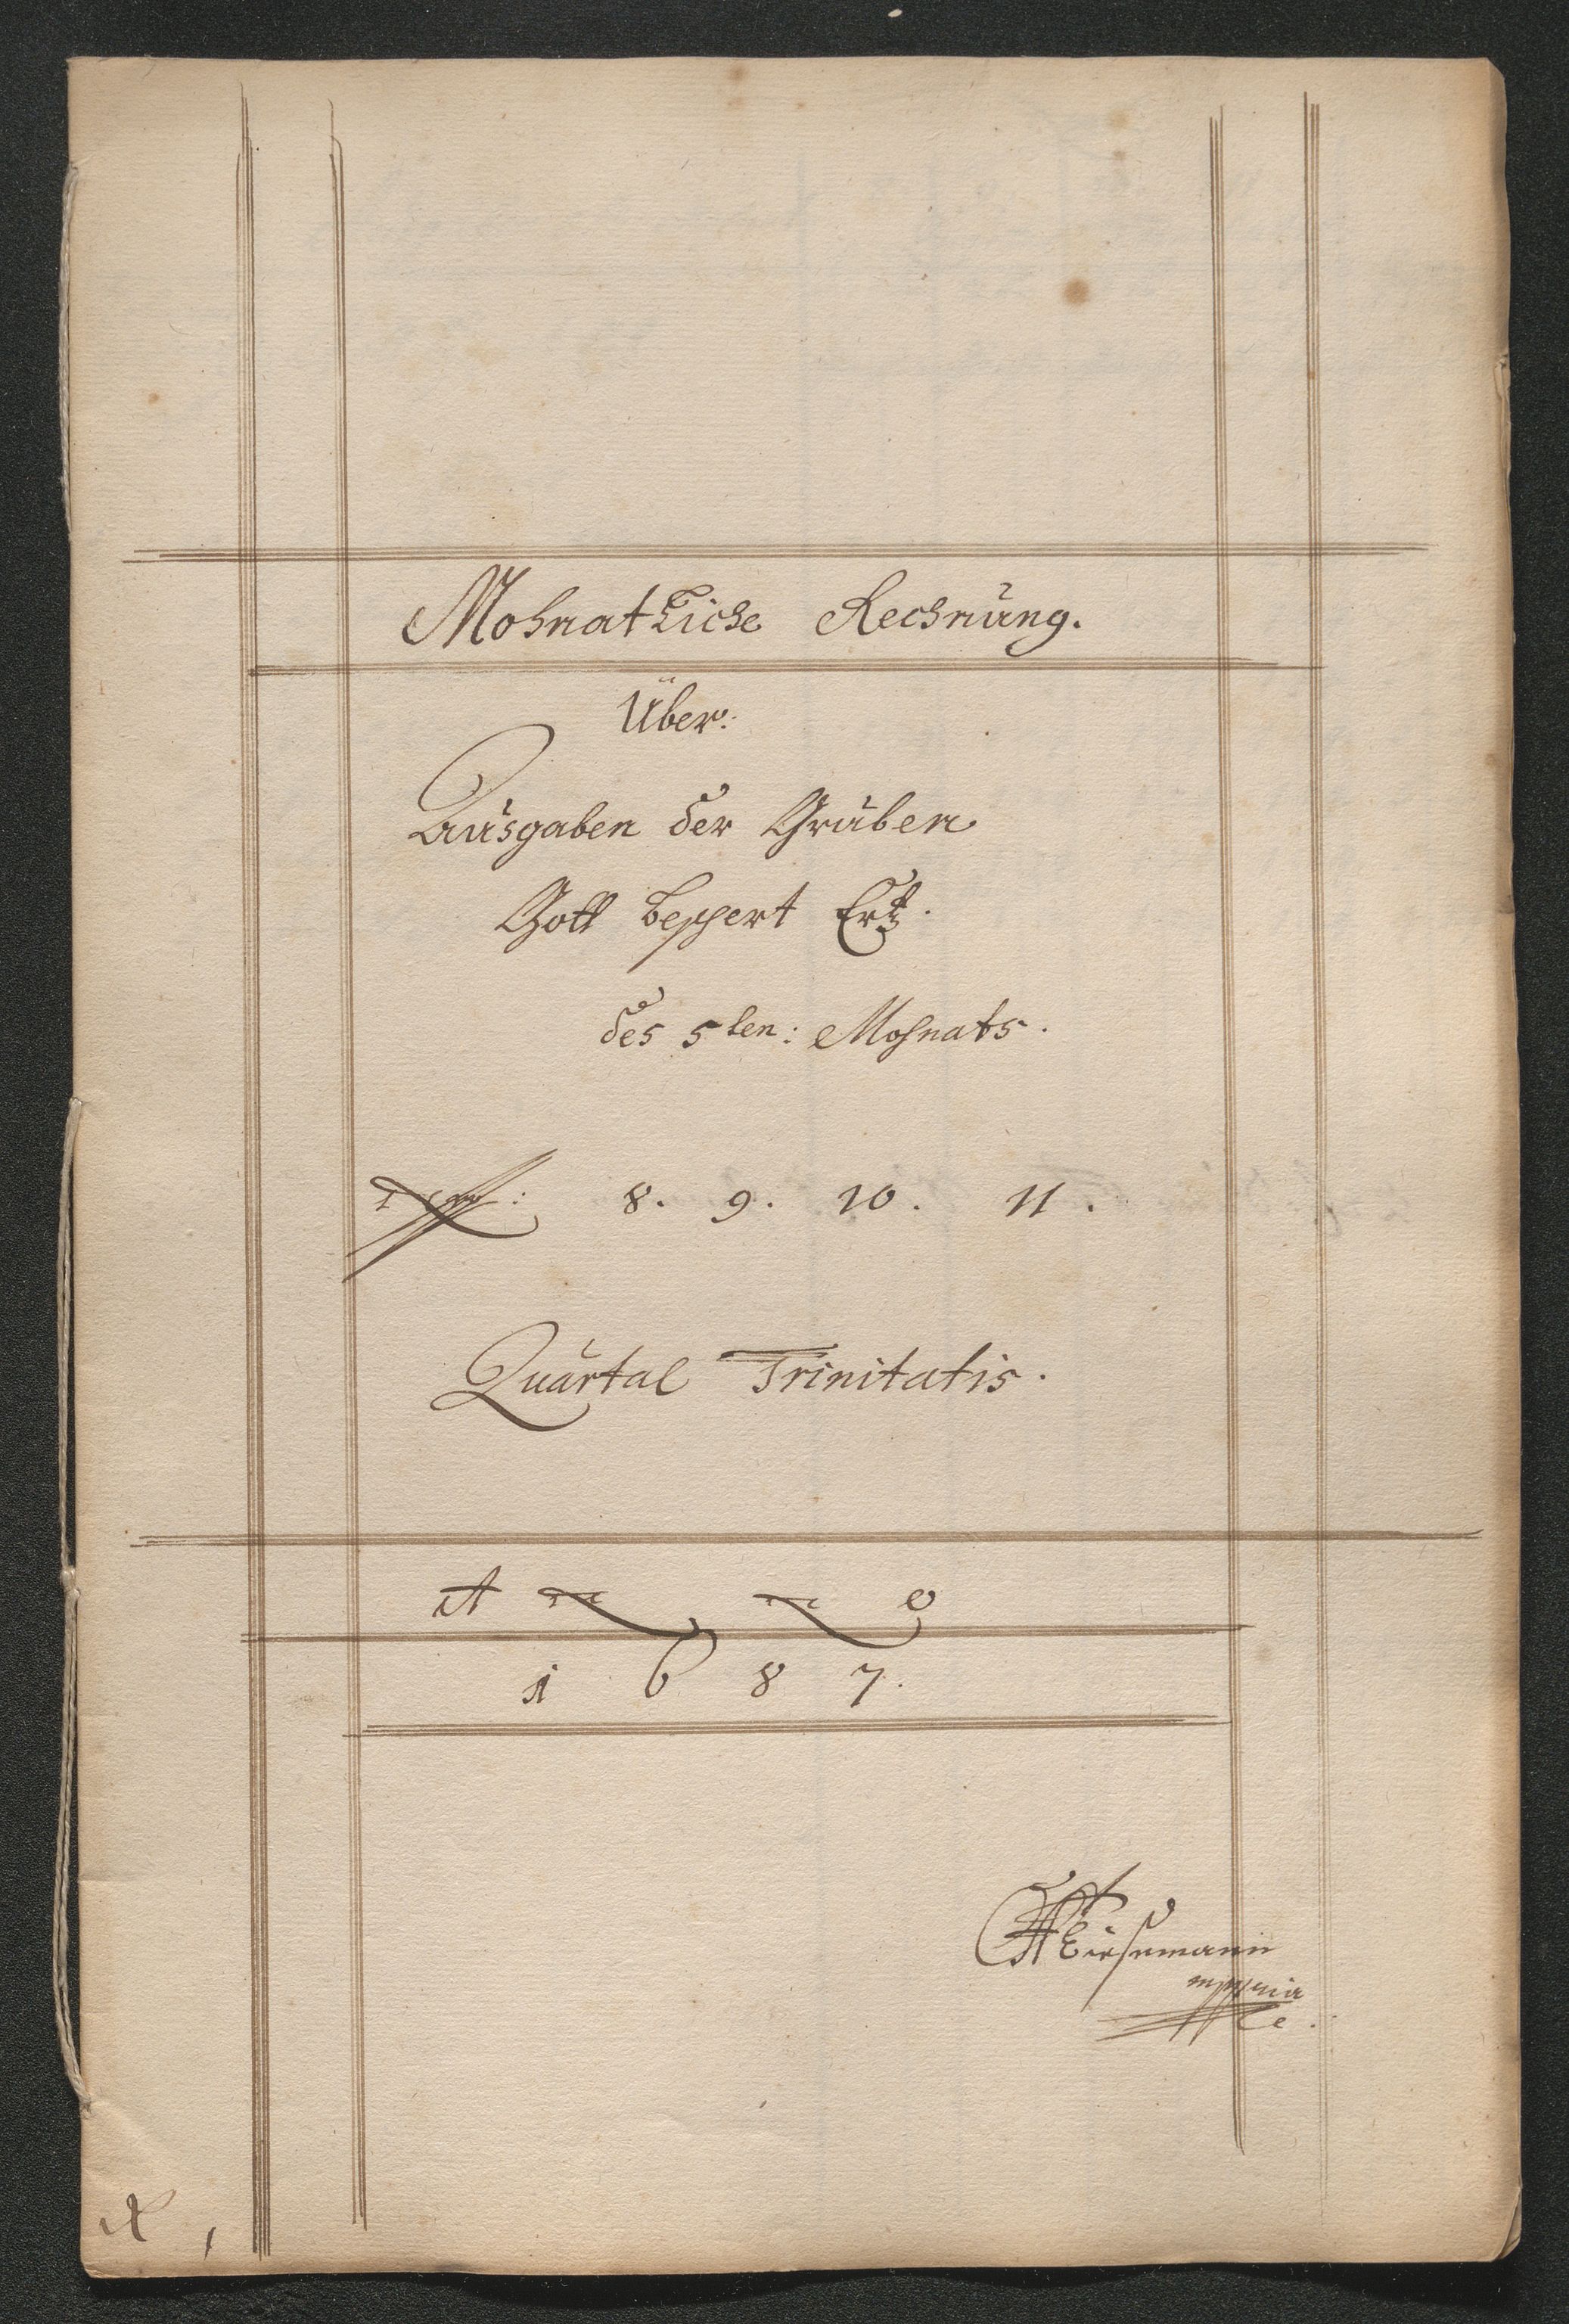 Mohnatliche Rechnung.
Über:
Ausgaben der Gruben
Gott beschert Ertz.
des 5ten: Mohnats.
8. 9. 10. 11.
Quartal Trinitatis.
Anno
1687.